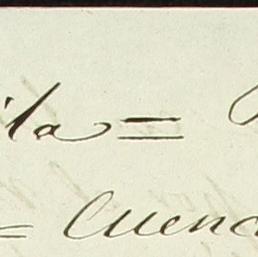 ila =
= Cuenc